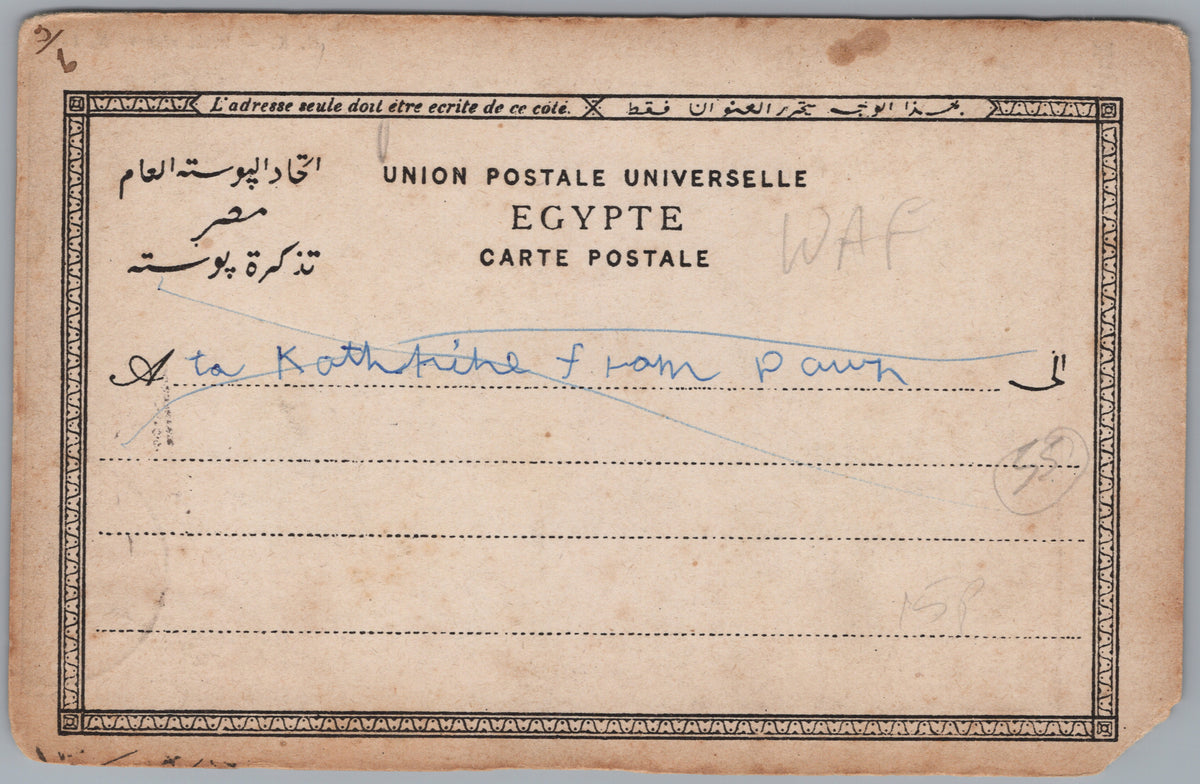 L'adresse seule doit être ecrite de ce côté. هذا الوجه لتحرير العنوان فقط
اتحاد الپوسته العام
مصر
تذكرة پوسته
UNION POSTALE UNIVERSELLE
EGYPTE
CARTE POSTALE
WAF
A to Kathrine from Dawn الى